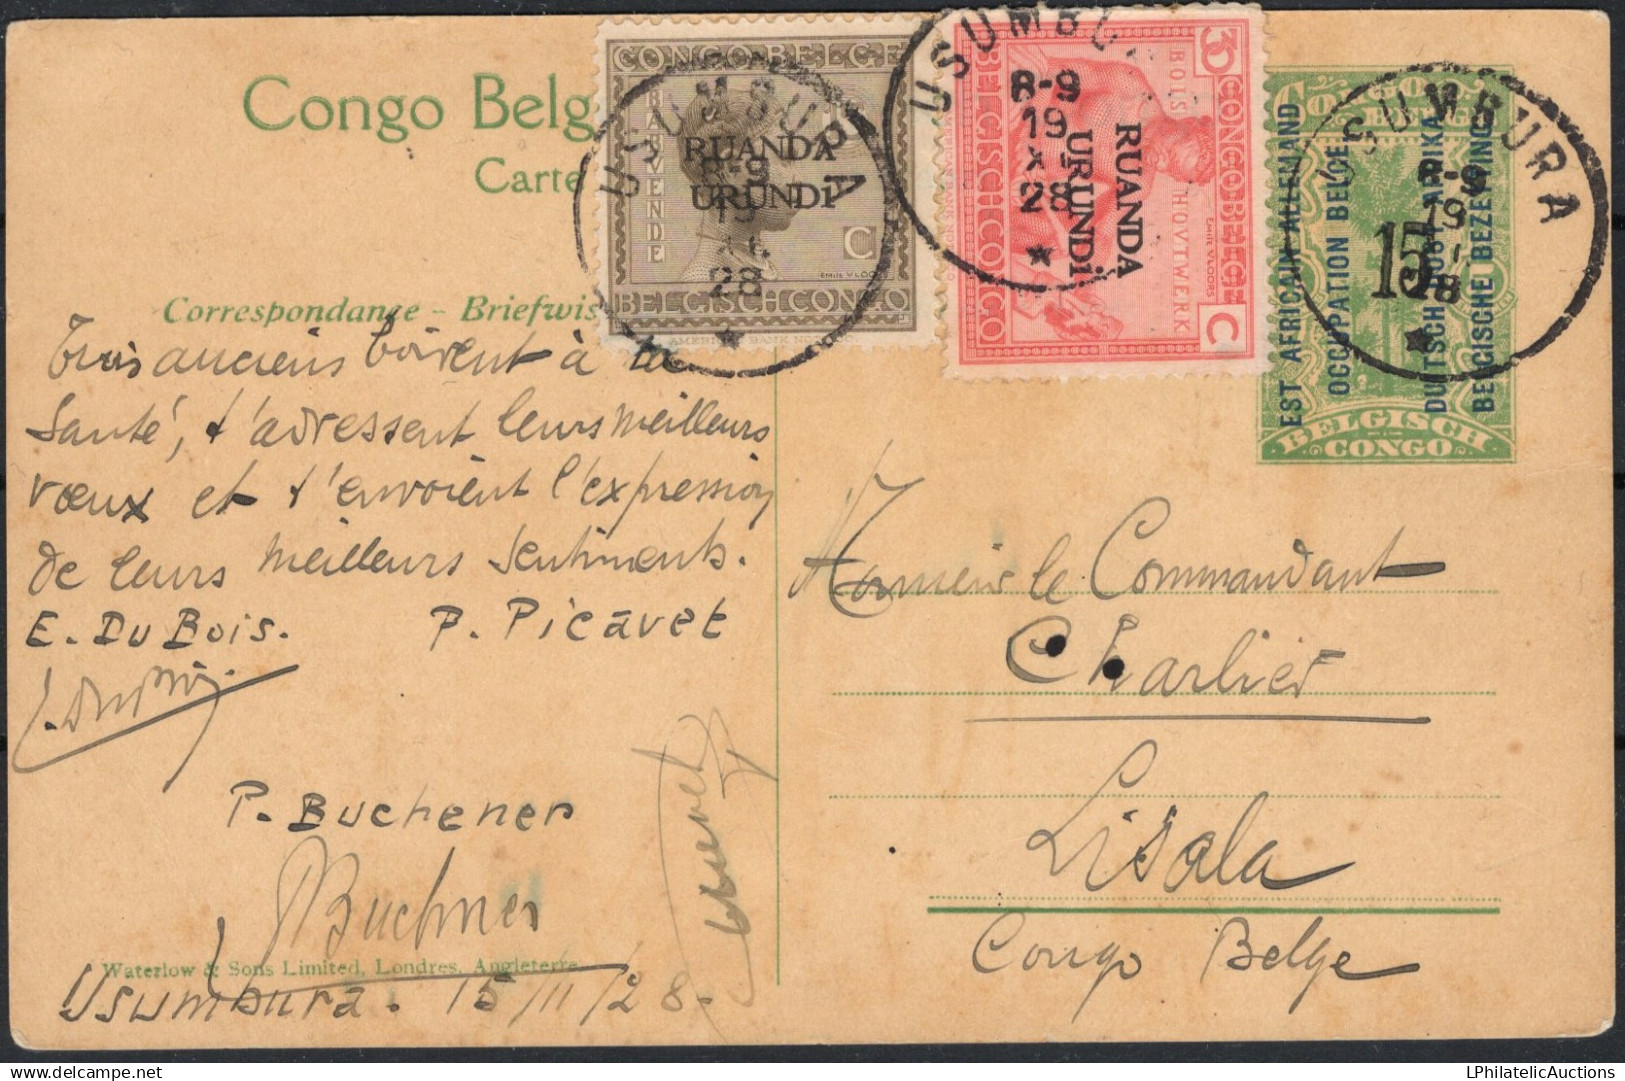 Congo Belg
Carte
Correspondance - Briefwis
CONGO BELGE
BAKVENDE
RUANDA
URUNDI
C
EMILE VLOORS
BELGISCH CONGO
AMERICAN BANK NO
USUMBURA
8-9
19
28
30
C
CONGO BELGE
BELGISCH CONGO
BOIS
HOVTWERK
EMILE VLOORS
RUANDA
URUNDI
USUMBU
8-9
19
XI
28
CONGO
BELGISCH
CONGO
EST AFRICAIN ALLEMAND
OCCUPATION BELGE
DUITSCH OOST AFRIKA
BELGISCHE BEZETTING
15
USUMBURA
8-9
19
28
Trois anciens boivent à ta
santé, t'adressent leurs meilleurs
vœux et t'envoient l'expression
de leurs meilleurs sentiments.
E. Du Bois. P. Picavet
P. Buchener
Buchner
Waterlow & Sons Limited, Londres, Angleterre
Usumbura. 15/11/28.
Monsieur le Commandant
Charlier
Lisala
Congo Belge
LPhilatelicAuctions